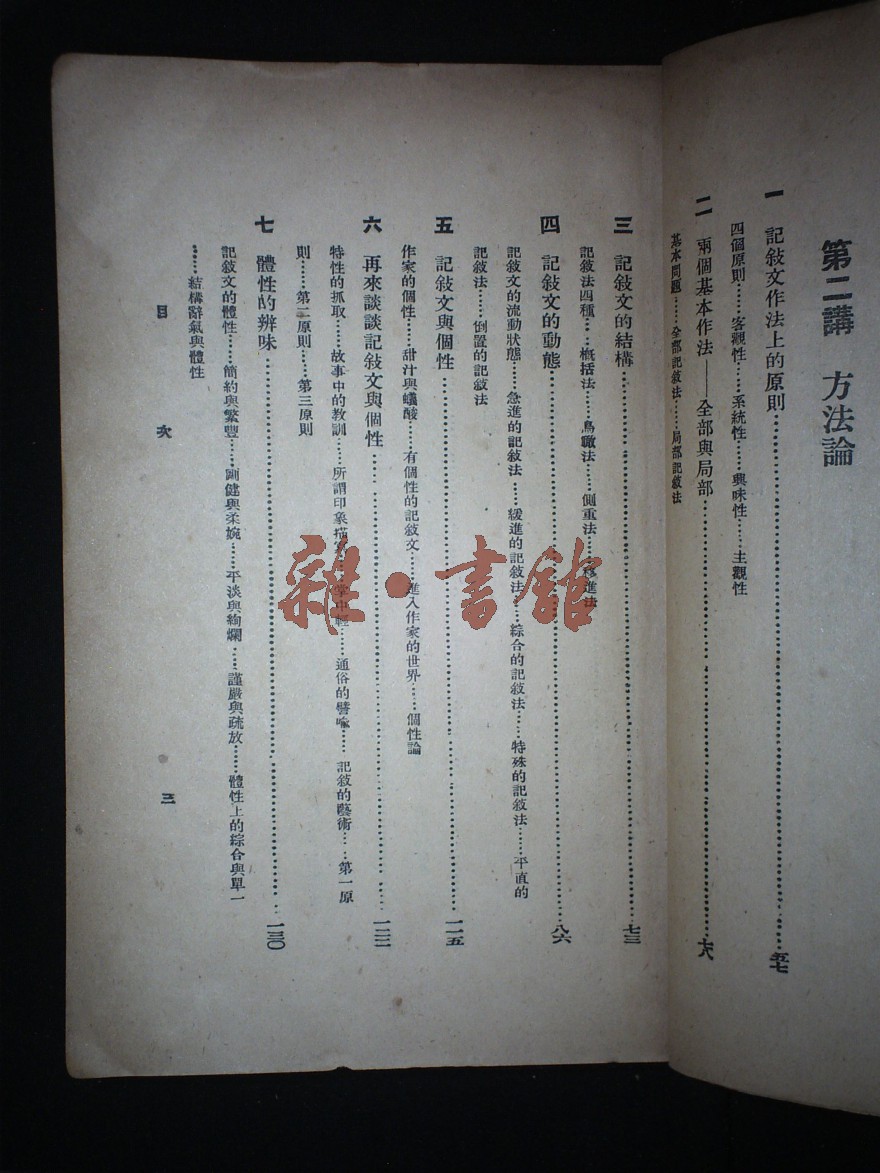 第二講 方法論
一 記敍文作法上的原則……五七
四個原則……客觀性……系統性……興味性……主觀性
二 兩個基本作法——全部與局部……六八
基本問題……全部記敍法……局部記敍法
三 記敍文的結構……七三
記敍法四種……概括法……鳥瞰法……側重法……移進法
四 記敍文的動態……八六
記敍文的流動狀態……急進的記敍法……緩進的記敍法……綜合的記敍法……特殊的記敍法……平直的
記敍法……倒置的記敍法
五 記敍文與個性……一一五
作家的個性……甜汁與蟻酸……有個性的記敍文……進入作家的世界……個性論
六 再來談談記敍文與個性……一二二
特性的抓取……故事中的教訓……所謂印象描寫……掌中輕……通俗的譬喩……記敍的藝術……第一原
則……第二原則……第三原則
七 體性的辨味……一三〇
記敍文的體性……簡約與繁豐……剛健與柔婉……平淡與絢爛……謹嚴與疏放……體性上的綜合與單一
……結構辭氣與體性
目 次 三
雜·書館